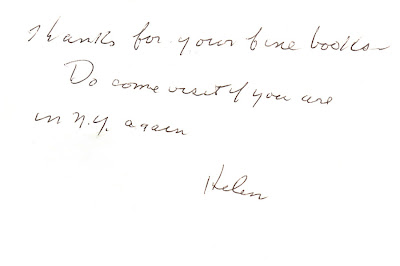 Thanks for your fine books—
Do come visit if you are
in N.Y. again
Helen